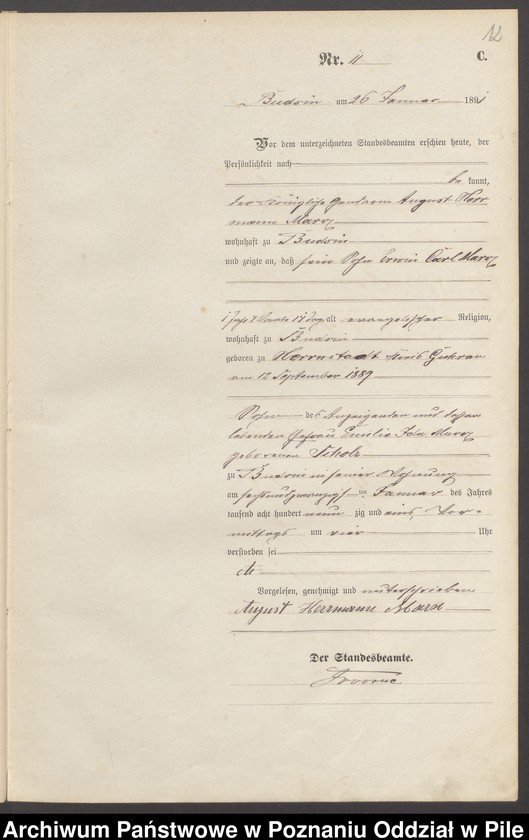 12
Nr. 11 C.
Budsin am 26 Januar 1891
Vor dem unterzeichneten Standesbeamten erschien heute, der
Persönlichkeit nach
be kannt,
der Königliche Gendarm August Herr
mann Marx
wohnhaft zu Budsin
und zeigte an, daß sein Sohn Erwin Carl Marx
1 Jahr 4 Monate 14 Tag alt evangelischer Religion,
wohnhaft zu Budsin
geboren zu Herrnstadt Kreis Guhrau
am 12 September 1889
Sohn des Anzeigenden und dessen
lebenden Ehefrau Emilie Ida Marx
geborenen Scholz
zu Budsin in seiner Wohnung
am sechsundzwanzigsten Januar des Jahres
tausend acht hundert neun zig und eins, Vor-
mittags um vier Uhr
verstorben sei
Vorgelesen, genehmigt und unterschrieben
August Herrmann Marx
Der Standesbeamte.
Archiwum Państwowe w Poznaniu Oddział w Pile